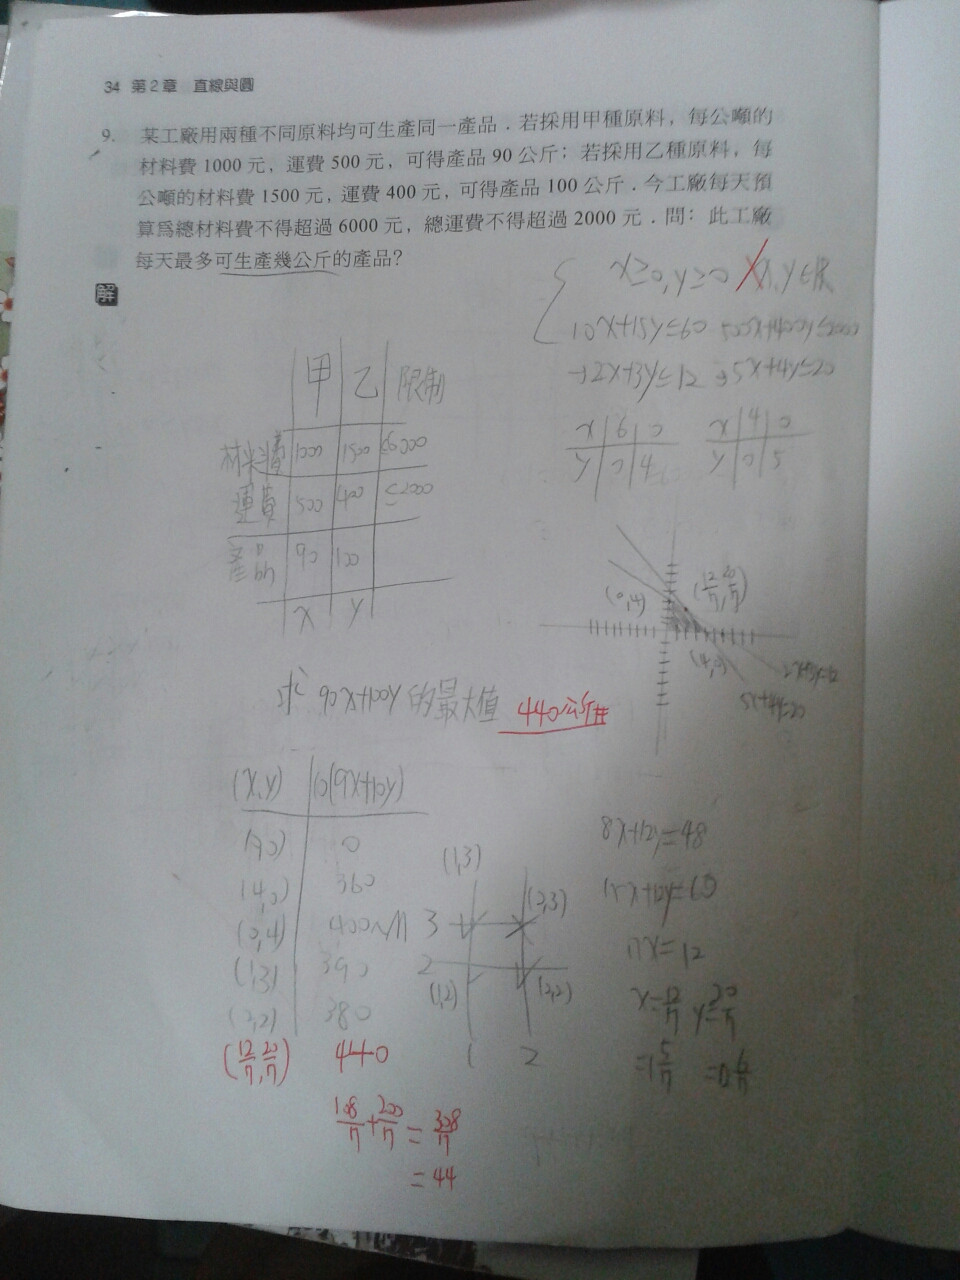 34 第2章 直線與圓
9. 某工廠用兩種不同原料均可生產同一產品．若採用甲種原料，每公噸的
材料費 1000 元，運費 500 元，可得產品 90 公斤；若採用乙種原料，每
公噸的材料費 1500 元，運費 400 元，可得產品 100 公斤．今工廠每天預
算為總材料費不得超過 6000 元，總運費不得超過 2000 元．問：此工廠
每天最多可生產幾公斤的產品？
解
x≥0, y≥0
10x+15y≤60 500x+400y≤2000
→2x+3y≤12 →5x+4y≤20
x 6 0
y 0 4
x 4 0
y 0 5
甲 乙 限制
材料費 1000 1500 ≤6000
運費 500 400 ≤2000
產品 90 100
x y
(0,4)
(12/7, 20/7)
(4,0)
2x+3y=12
5x+4y=20
求 90x+100y 的最大值 440公斤#
(x,y) 10(9x+10y)
(0,0) 0
(4,0) 360
(0,4) 400
(1,3) 390
(2,2) 380
(12/7, 20/7) 440
108/7+200/7=308/7
=44
(1,3)
3
2
(1,2)
(2,3)
(2,2)
1 2
8x+12y=48
15x+12y=60
7x=12
x=12/7 y=20/7
=1 5/7